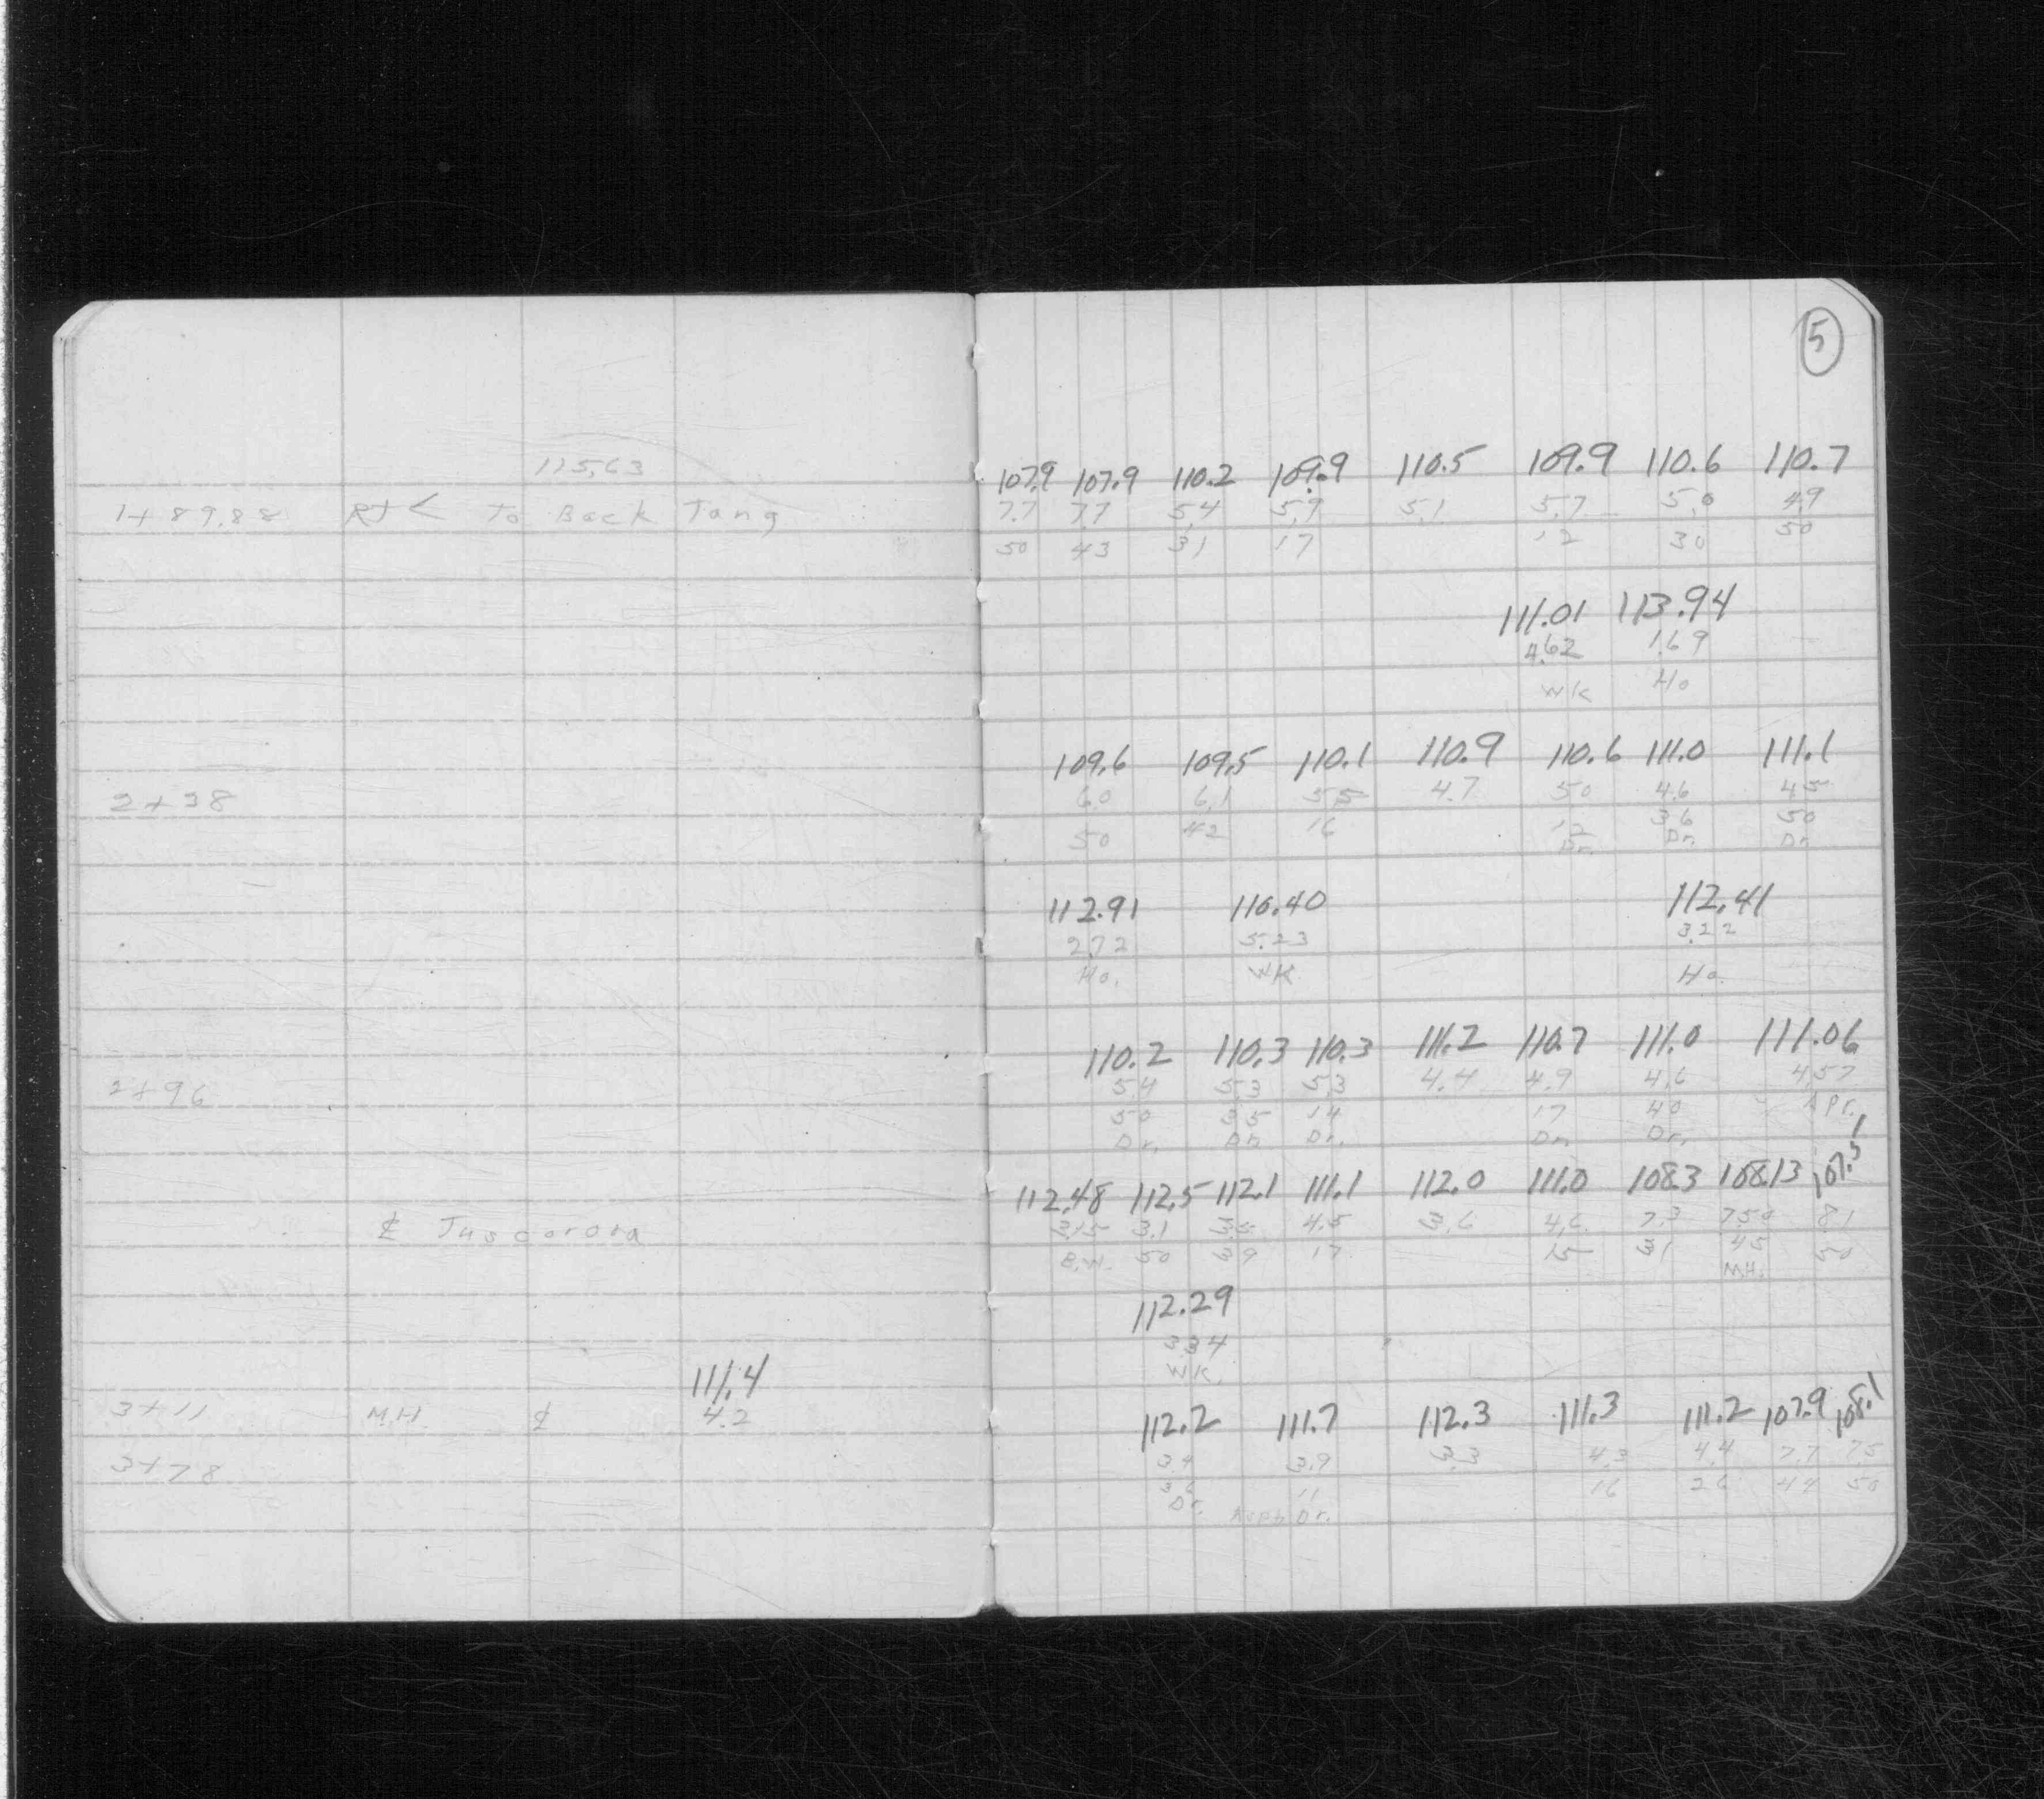 5
115.63
107.9 107.9 110.2 109.9 110.5 109.9 110.6 110.7
1+89.88 Rt < To Back Tang 7.7 7.7 5.4 5.9 5.1 5.7 5.0 4.9
50 43 31 17 12 30 50
111.01 113.94
4.62 1.69
WK Ho
109.6 109.5 110.1 110.9 110.6 111.0 111.1
2+38 6.0 6.1 5.5 4.7 5.0 4.6 4.5
50 42 16 12 36 50
Dr. Dr. Dr.
112.91 110.40 112.41
2.72 5.23 3.22
Ho. WK Ho.
110.2 110.3 110.3 111.2 110.7 111.0 111.06
2+96 5.4 5.3 5.3 4.4 4.9 4.6 4.57
50 35 14 17 40 Apr.
Dr. Dr. Dr. Dr. Dr.
112.48 112.5 112.1 111.1 112.0 111.0 108.3 108.13 107.5
₵ Tuscorora 3.15 3.1 3.5 4.5 3.6 4.6 7.3 7.50 8.1
B.W. 50 39 17 15 31 45 50
MH.
112.29
3.34
WK.
111.4
3+11 M.H. ₵ 4.2
112.2 111.7 112.3 111.3 111.2 107.9 108.1
3+78 3.4 3.9 3.3 4.3 4.4 7.7 7.5
36 11 16 26 44 50
Dr. Asph Dr.